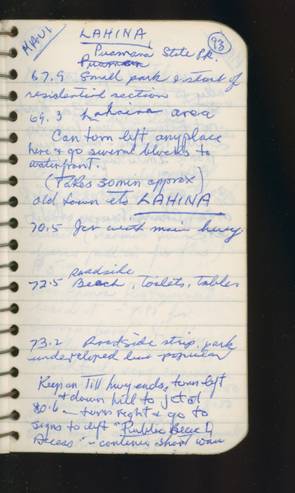 MAUI
LAHINA
93
Puamana State Pk.
67.9 Small park & start of
residential section
69.3 Lahaina area
Can turn left anyplace
here & go several blocks to
waterfront.
(Takes 30 min approx)
old town etc LAHINA
70.5 Jcn with main hwy
72.5 Roadside
Beach, toilets, tables
73.2 Roadside strip, park
undeveloped but popular
Keep on Till hwy ends, turn left
& down hill to jct of
80.6 - turn right & go to
signs to left "Public Beach
Access" - continue short